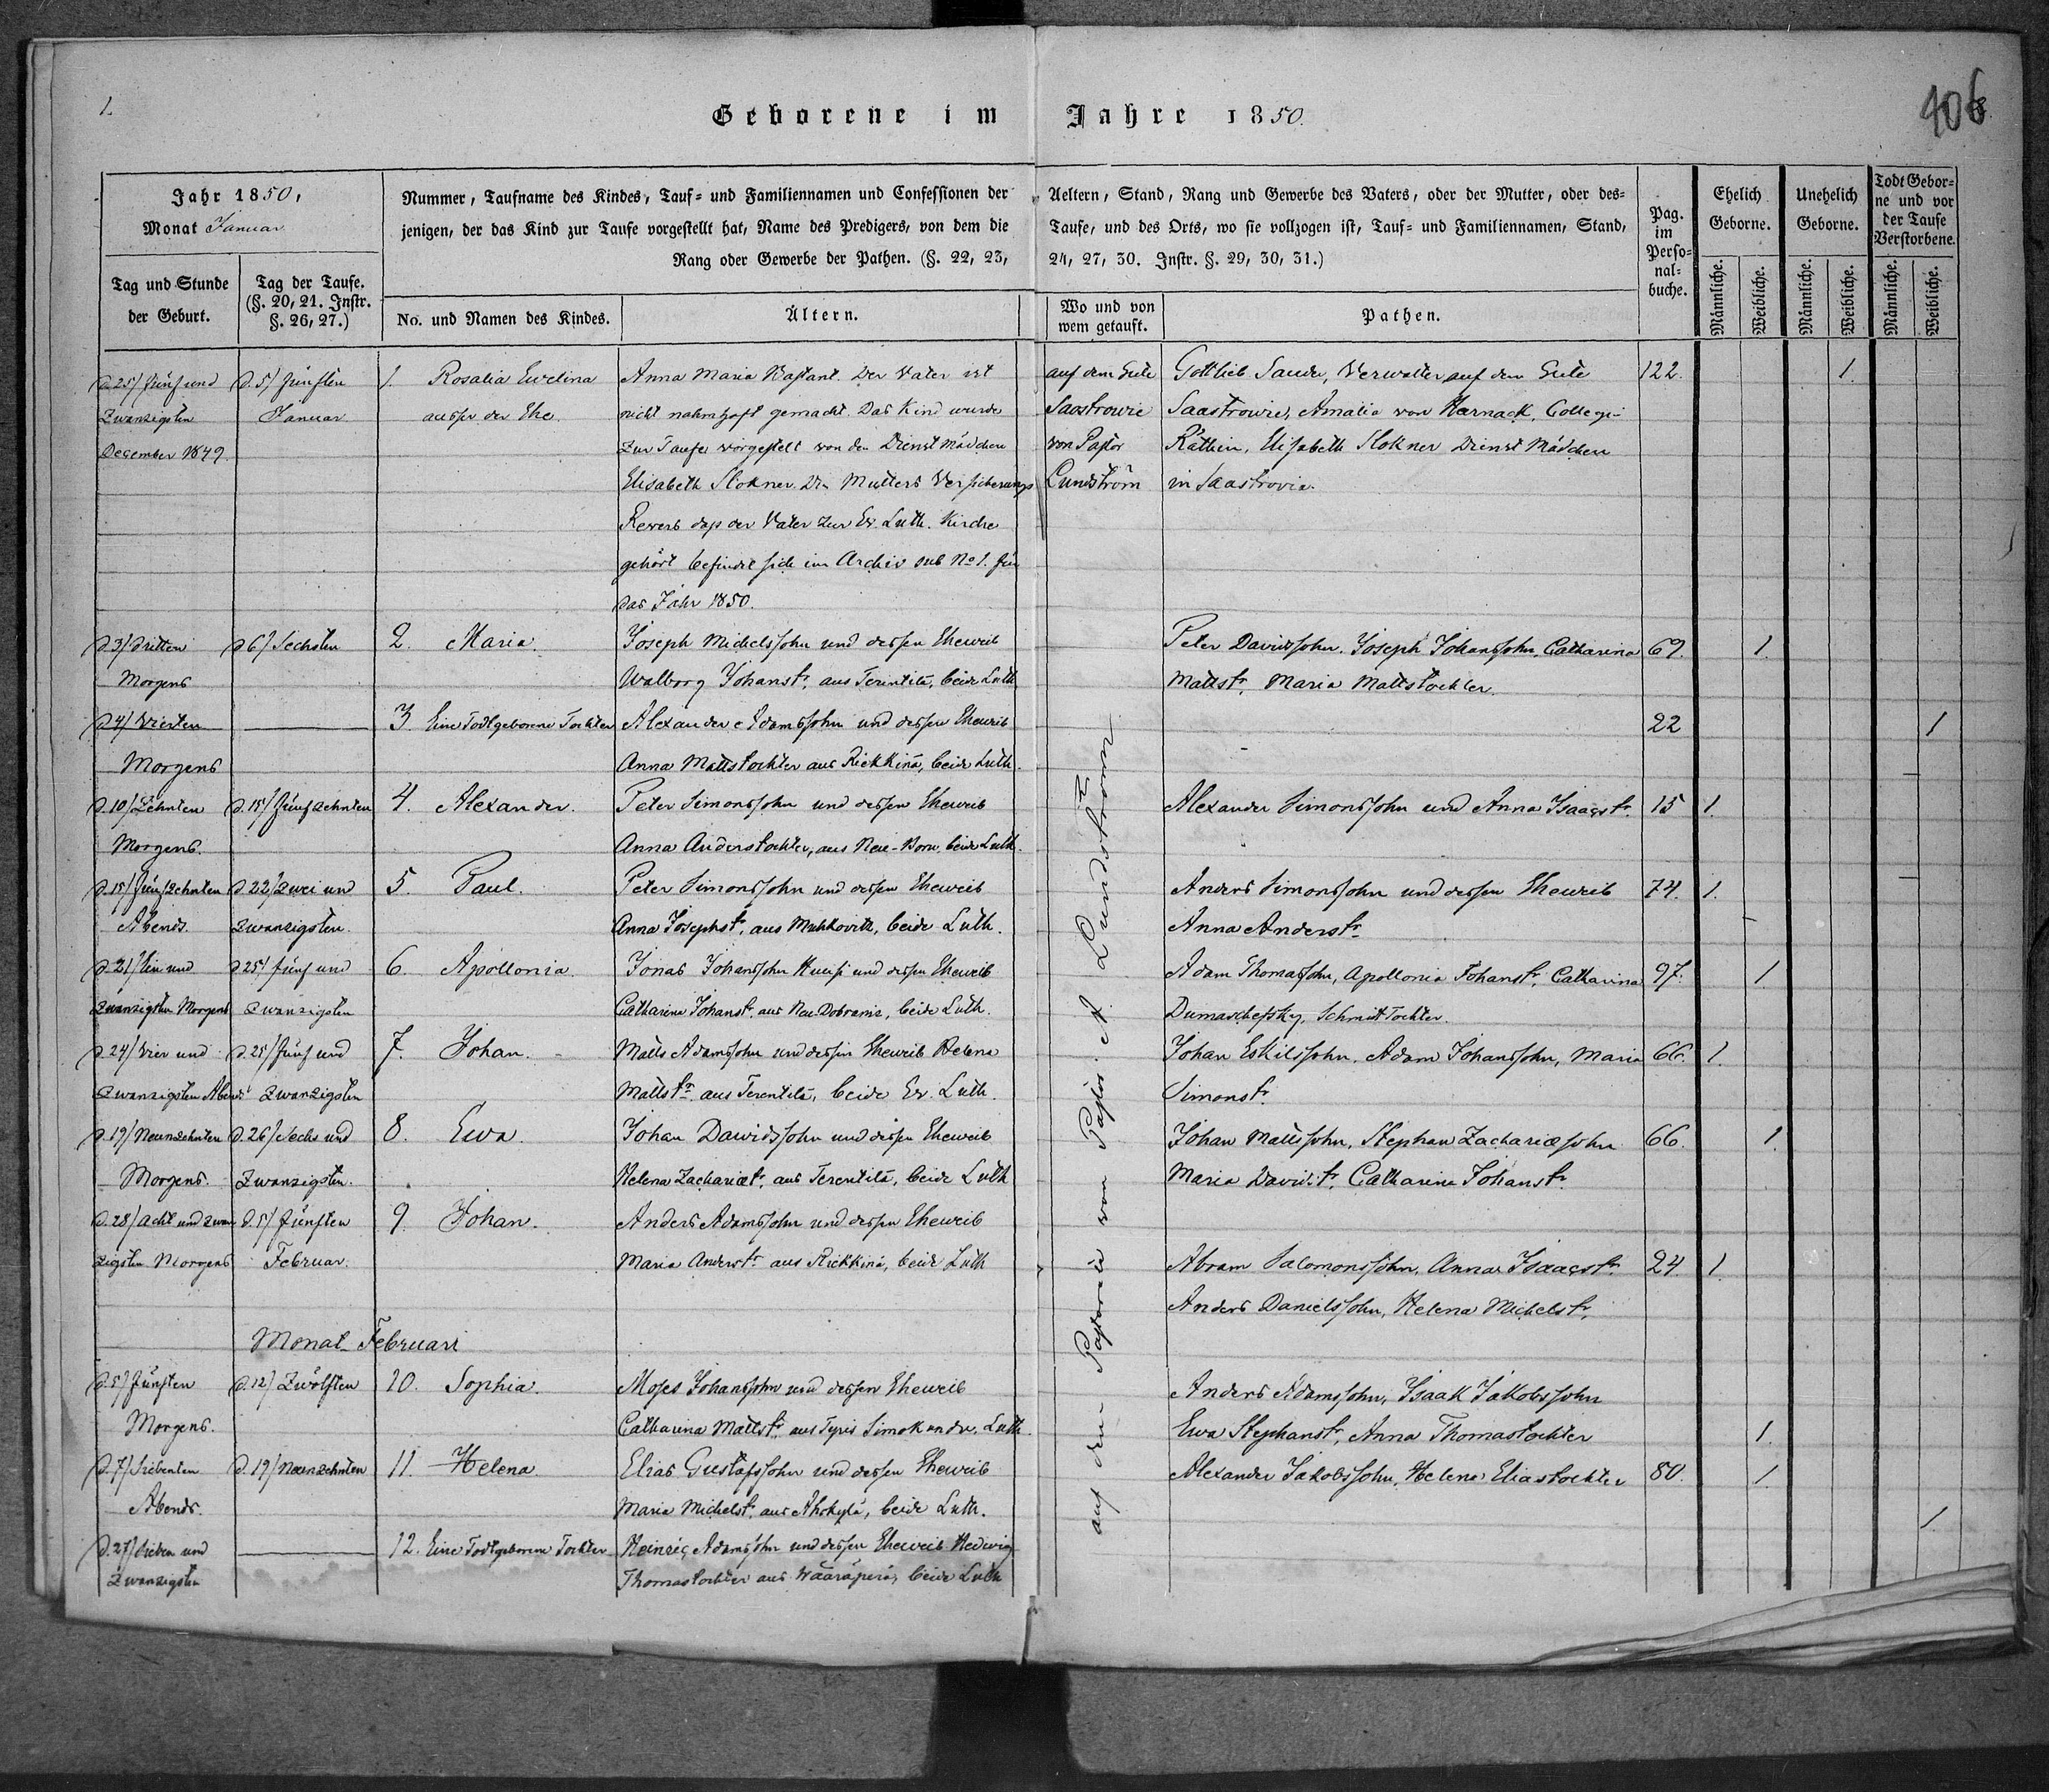 1.
Geborene im Jahre 1850.
406
Jahr 1850,
Monat Januar
Tag und Stunde
der Geburt.
Tag der Taufe.
(§. 20, 21. Instr.
§. 26, 27.)
Nummer, Taufname des Kindes, Tauf- und Familiennamen und Confessionen der Aeltern, Stand, Rang und Gewerbe des Vaters, oder der Mutter, oder des-
jenigen, der das Kind zur Taufe vorgestellt hat, Name des Predigers, von dem die Taufe, und des Orts, wo sie vollzogen ist, Tauf- und Familiennamen, Stand,
Rang oder Gewerbe der Pathen. (§. 22, 23, 24, 27, 30. Instr. §. 29, 30, 31.)
No. und Namen des Kindes.
Ältern.
Wo und von
wem getauft.
Pathen.
Pag.
im
Perso-
nal-
buche.
Ehelich
Geborne.
Unehelich
Geborne.
Todt Gebor-
ne und vor
der Taufe
Verstorbene.
Männliche.
Weibliche.
Männliche.
Weibliche.
Männliche.
Weibliche.
d. 25/ fünf und d. 5/ fünften 1. Rosalia Ewelina Anna Maria Wastant. Der Vater ist auf dem Gute Gottlieb Sander, Verwalter auf dem Gute 122. 1.
Zwanzigsten Januar ausser der Ehe. nicht nahmhaft gemacht. Das Kind wurde Saastrowie Saastrowie, Amalia von Harnack, Collegi-
December 1849. zur Taufe vorgestelt von den Dienst Mädchen von Pastor Räthin, Elisabeth Slokner Dienst Mädchen
Elisabeth Slokner. Der Mutters Versicherungs Lundström in Saastrovie.
Revers dass der Vater zur Ev. Luth. Kirche
gehört befindet sich im Archiv sub No 1. für
das Jahr 1850.
d. 3/ dritten d 6/ Sechsten 2. Maria. Joseph Michelssohn und dessen Eheweib Peter Davidssohn. Joseph Johanssohn, Catharina 69. 1.
Morgens Walborg Johanstr. aus Terentilä, beide Luth. Mattstr. Maria Mattstochter.
d 4/ Vierten 3. Eine Todtgeborene Tochter Alexander Adamssohn und dessen Eheweib 22 1
Morgens Anna Mattstochter aus Rickkinä, beide Luth.
d. 10/ Zehnten d. 15/ fünfzehnten 4. Alexander. Peter Simonssohn und dessen Eheweib Alexander Simonssohn und Anna Isaacstr. 15 1.
Morgens. Anna Anderstochter, aus Neu-Born, beide Luth.
d. 15/ fünfzehnten d. 22/ Zwei und 5. Paul. Peter Simonssohn und dessen Eheweib Anders Simonssohn und dessen Eheweib 74. 1.
Abends. Zwanzigsten. Anna Josephst. aus Muhkovitz, beide Luth. Anna Anderstr.
d. 21/ Ein und d 25/ fünf und 6. Apollonia. Jonas Johanssohn und dessen Eheweib Adam Thomassohn, Apollonia Johanst. Catharina 97. 1.
Zwanzigsten Morgens Zwanzigsten Catharina Johanst. aus Neu Dobranie, beide Luth. Dumaschefsky, Schmidt Tochter.
d. 24/ Vier und d. 25/ fünf und 7. Johan. Matts Adamssohn und dessen Eheweib Helena Johan Eskilssohn, Adam Johanssohn, Maria 66. 1.
Zwanzigsten Abends Zwanzigsten Mattstr. aus Terentilä, beide Ev. Luth. Simonst.
d. 19/ Neunzehnten d. 26/ Sechs und 8. Ewa. Johan Dawidssohn und dessen Eheweib Johan Mattssohn, Stephan Zachariæsohn 66. 1.
Morgens. Zwanzigsten. Helena Zachariæt. aus Terentilä, beide Luth Maria Davidst. Catharina Johanst.
d. 28/ Acht und zwan d. 5/ fünften 9. Johan. Anders Adamssohn und dessen Eheweib
zigsten Morgens Februar. Maria Anderstr. aus Rickkinä, beide Luth Abram Salomonssohn, Anna Isaacstr. 24. 1.
Anders Danielssohn, Helena Michelst.
Monat Februari
d. 5/ fünften d. 12/ Zwölften 10. Sophia. Moses Johanssohn und dessen Eheweib Anders Adamssohn, Isaak Jakobssohn
Morgens. Catharina Mattst. aus Typis Simokandr. Luth. Ewa Stephanst. Anna Thomastochter 1.
d. 7/ Siebenten d. 19/ Neunzehnten 11. Helena. Elias Gustafssohn und dessen Eheweib Alexander Jakobssohn, Helena Eliastochter 80. 1.
Abends. Maria Michelst. aus Ahokylä, beide Luth.
d. 27/ Sieben und 12. Eine Todtgeborene Tochter Heinric Adamssohn und dessen Eheweib Hedwig 1
Zwanzigsten Thomastochter aus Wääräperä, beide Luth
auf dem Pastorate von Pastor A. Lundström